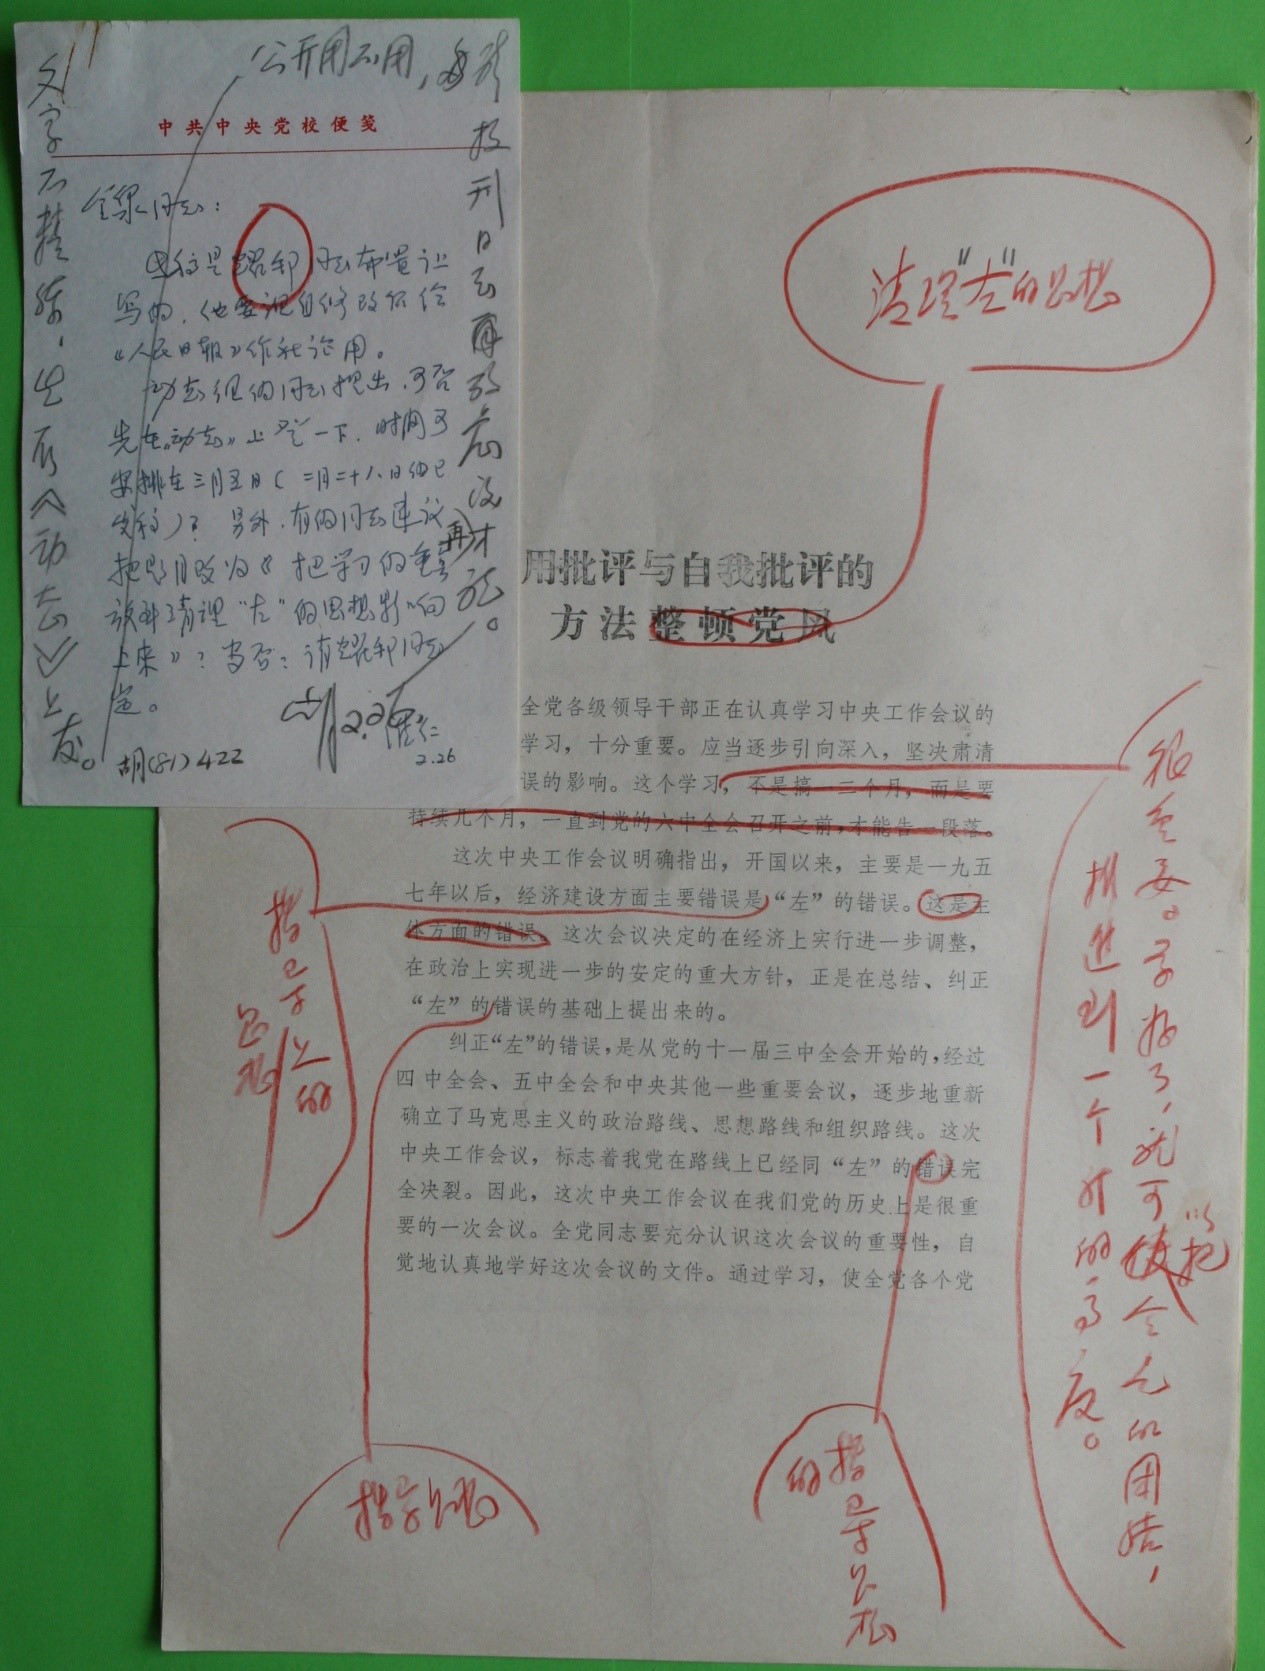 公开用不用，每
中共中央党校便笺
同志：
这是耀邦同志布置让
写的，他要亲自修改后给
《人民日报》作社论用。
动态组的同志提出，可否
先在《动态》上登一下，时间可
安排在三月五日（二月二十八日的已
发稿）？另外，有的同志建议
把题目改为《把学习的重点
放到清理“左”的思想影响
上来》？当否？请耀邦同志
定。
胡 2.26
2.26
胡(81)422
文字不
《动态》上
发。
报刊日
再
清理“左”的思想
用批评与自我批评的
方法整顿党风
全党各级领导干部正在认真学习中央工作会议的
学习，十分重要。应当逐步引向深入，坚决肃清
误的影响。这个学习，不是搞一二个月，而是要
持续几个月，一直到党的六中全会召开之前，才能告一段落。
这次中央工作会议明确指出，开国以来，主要是一九五
七年以后，经济建设方面主要错误是“左”的错误。这是主
体方面的错误。这次会议决定的在经济上实行进一步调整，
在政治上实现进一步的安定的重大方针，正是在总结、纠正
“左”的错误的基础上提出来的。
纠正“左”的错误，是从党的十一届三中全会开始的，经过
四中全会、五中全会和中央其他一些重要会议，逐步地重新
确立了马克思主义的政治路线、思想路线和组织路线。这次
中央工作会议，标志着我党在路线上已经同“左”的错误完
全决裂。因此，这次中央工作会议在我们党的历史上是很重
要的一次会议。全党同志要充分认识这次会议的重要性，自
觉地认真地学好这次会议的文件。通过学习，使全党各个党
很重要。学好了，就可以把全党的团结，
推进到一个新的高度。
指导
思想上的
指导思想
指导思想
的